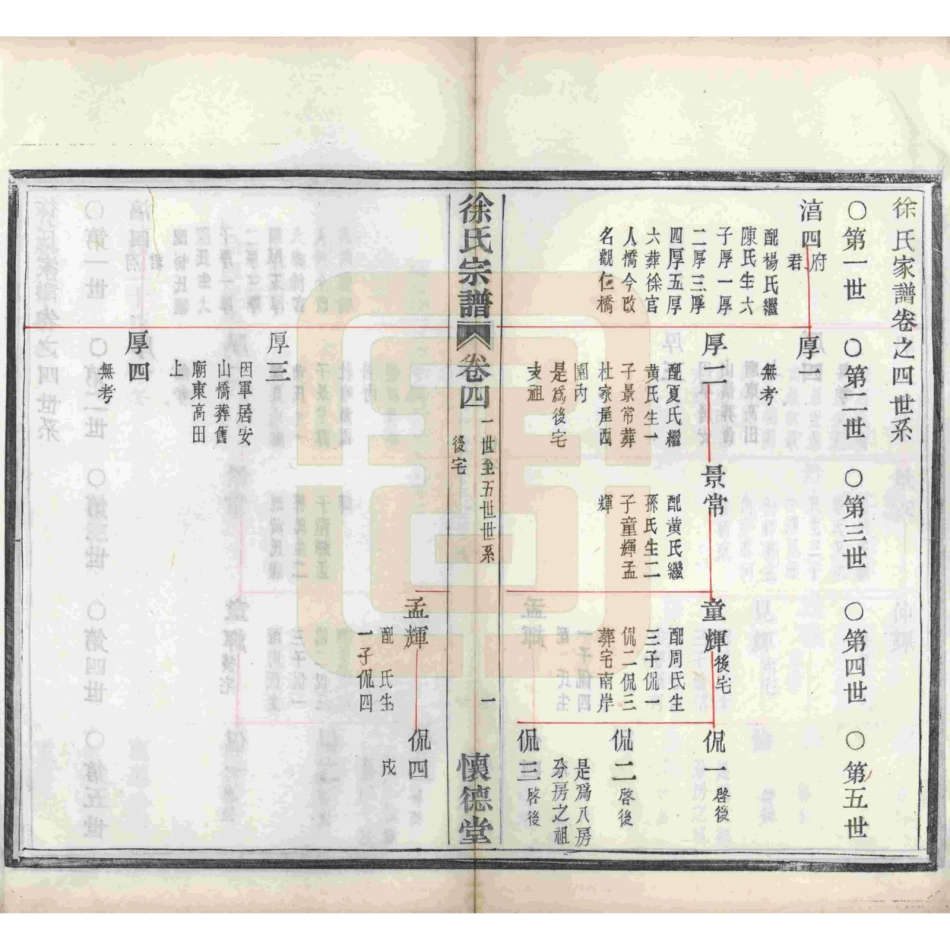 徐氏家譜卷之四世系
○第一世
○第二世
○第三世
○第四世
○第五世
滈四府君
配楊氏繼
陳氏生六
子厚一厚
二厚三厚
四厚五厚
六葬徐官
人橋今改
名觀仁橋
厚一
無考
厚二
配夏氏繼
黄氏生一
子景常葬
杜家㞘西
園内
是爲後宅
支祖
景常
配黄氏繼
孫氏生二
子童輝孟
輝
童輝後宅
配周氏生
三子侃一
侃二侃三
葬宅南岸
侃一啓後
侃二啓後
是爲八房
分房之祖
侃三啓後
徐氏宗譜
卷四
一世至五世世系
後宅
一
懷德堂
孟輝
配 氏生
一子侃四
侃四
戍
厚三
田軍居安
山橋葬舊
廟東高田
上
厚四
無考